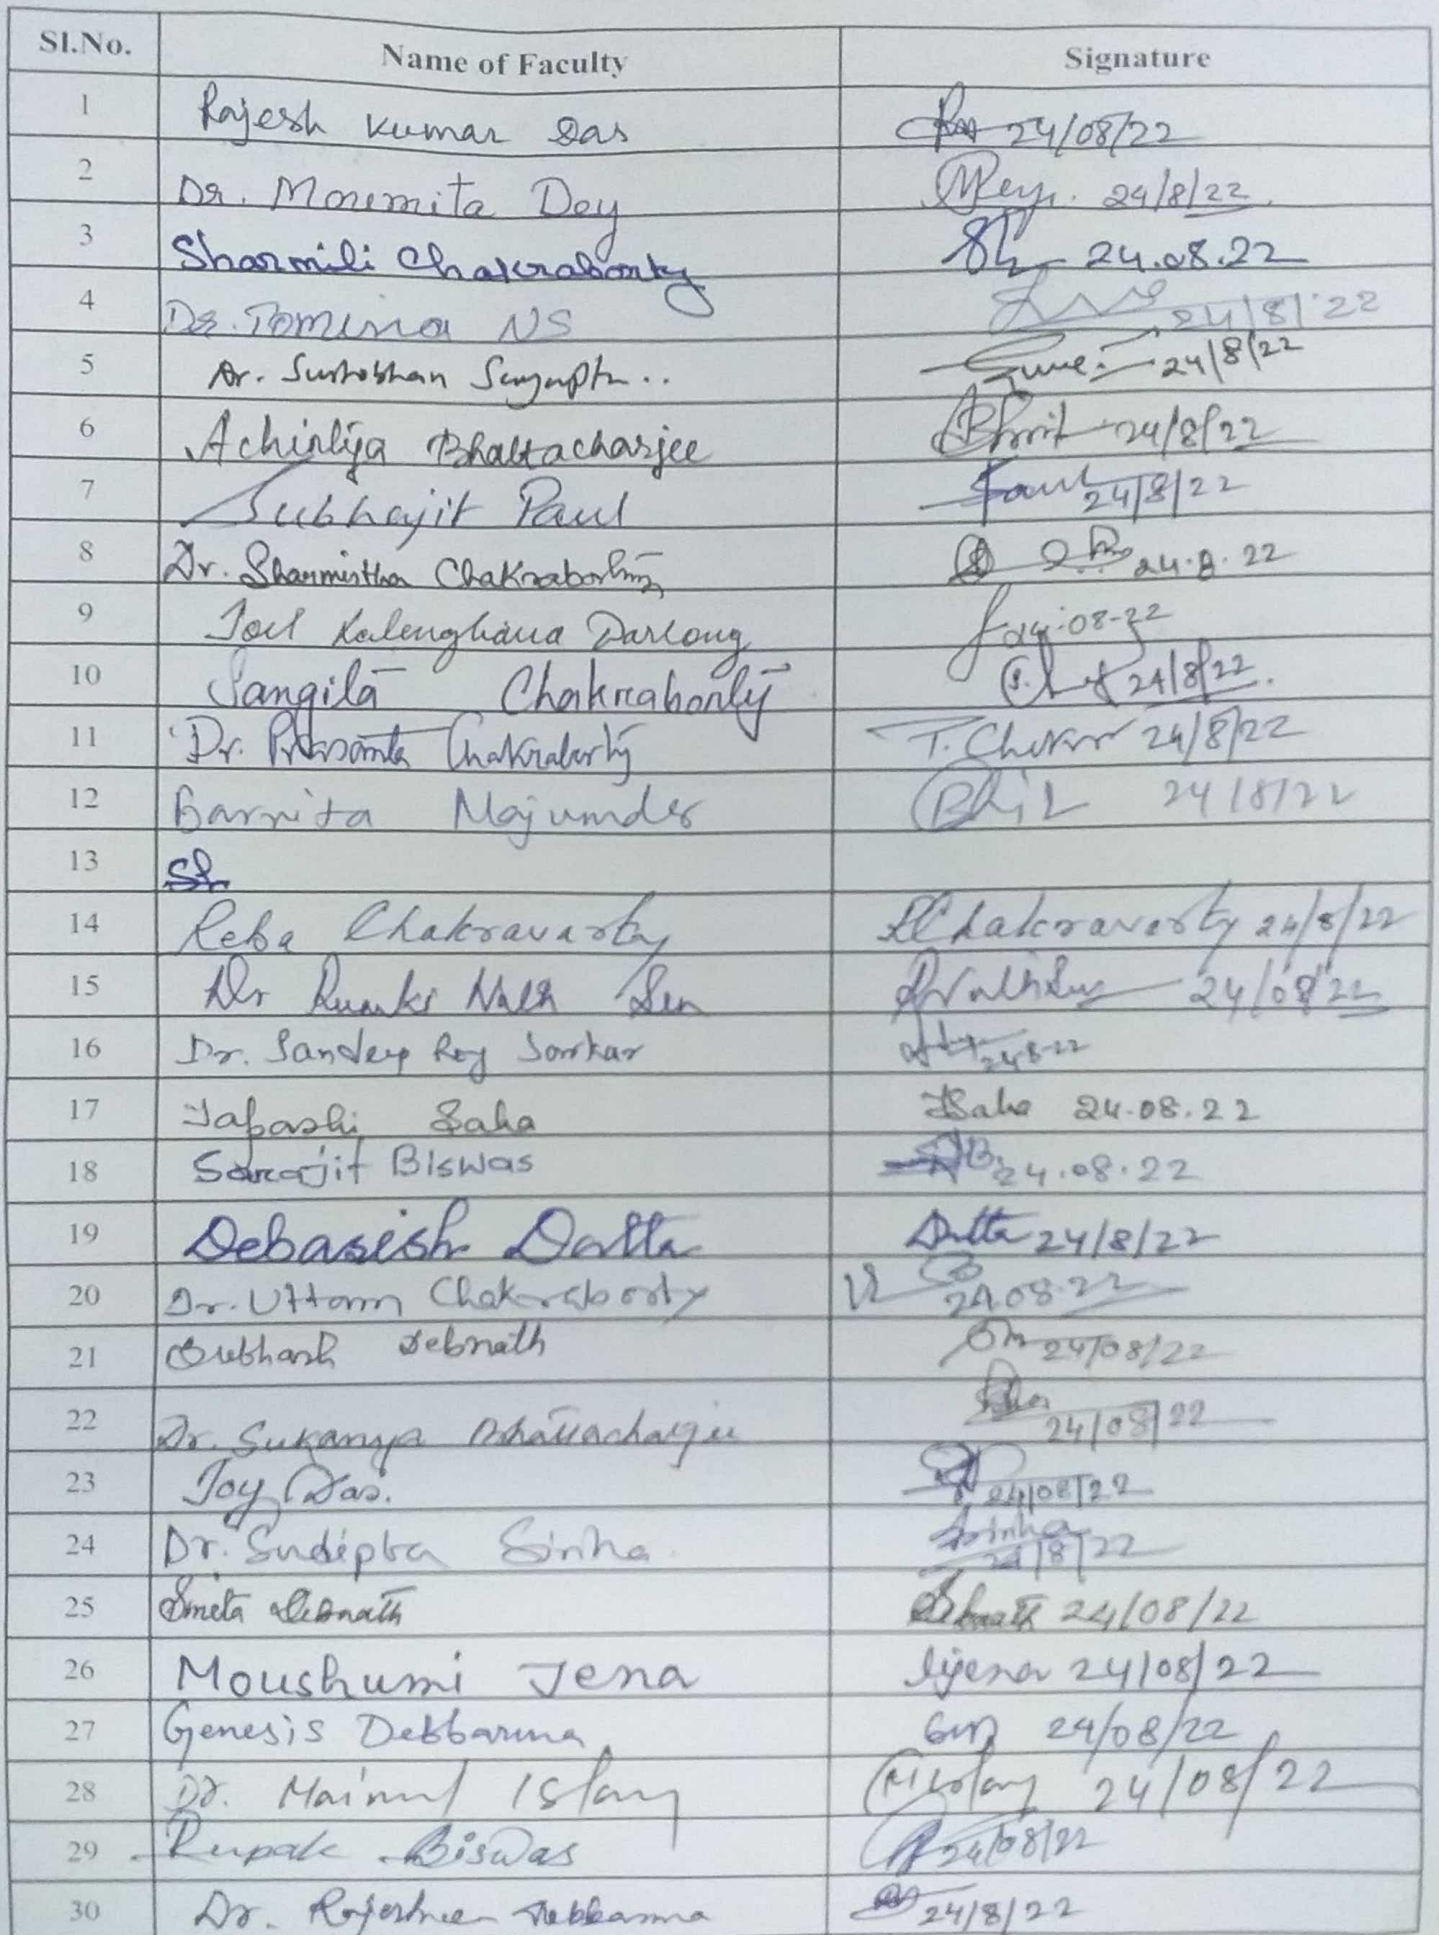 Sl.No. Name of Faculty Signature
1 Rajesh Kumar Das 24/08/22
2 Dr. Moumita Dey 24/8/22
3 Sharmili Chakraborty 24.08.22
4 Dr. Tomina NS 24/8/'22
5 Dr. Sushobhan Sengupta .. 24/8/22
6 Achintya Bhattacharjee 24/8/22
7 Subhajit Paul Paul 24/8/22
8 Dr. Sharmistha Chakraborty 24.8.22
9 Joel Lalengliana Darlong 24-08-22
10 Sangita Chakraborty 24/8/22.
11 Dr. Prasanta Chakraborty 24/8/22
12 Barnita Majumder 24/8/22
13
14 Reba Chakravarty RChakravarty 24/8/22
15 Dr Rumki Nath Sen RNathSen 24/08/22
16 Dr. Sandeep Roy Sarkar 24-8-22
17 Tapashi Saha TSaha 24.08.22
18 Sarajit Biswas 24.08.22
19 Debasish Datta Datta 24/8/22
20 Dr. Uttam Chakraborty 24.08.22
21 Subhash Debnath 24/08/22
22 Dr. Sukanya Bhattacharjee 24/08/22
23 Joy Das. 24/08/22
24 Dr. Sudipta Sinha Sinha 24/8/22
25 Smita Debnath 24/08/22
26 Moushumi Jena Mjena 24/08/22
27 Genesis Debbarma 24/08/22
28 Dr. Mainul Islam MIslam 24/08/22
29 Rupak Biswas 24/08/22
30 Dr. Rajashree Debbarma 24/8/22